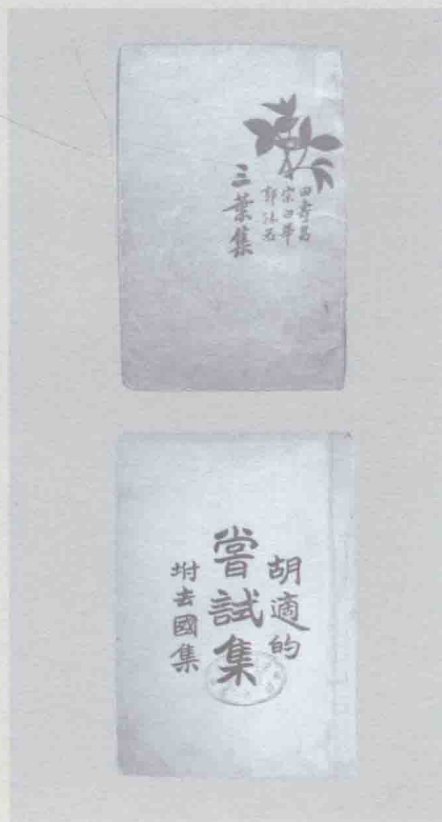 田壽昌
宗白華
郭沫若
三葉集
胡適的
嘗試集
坿去國集